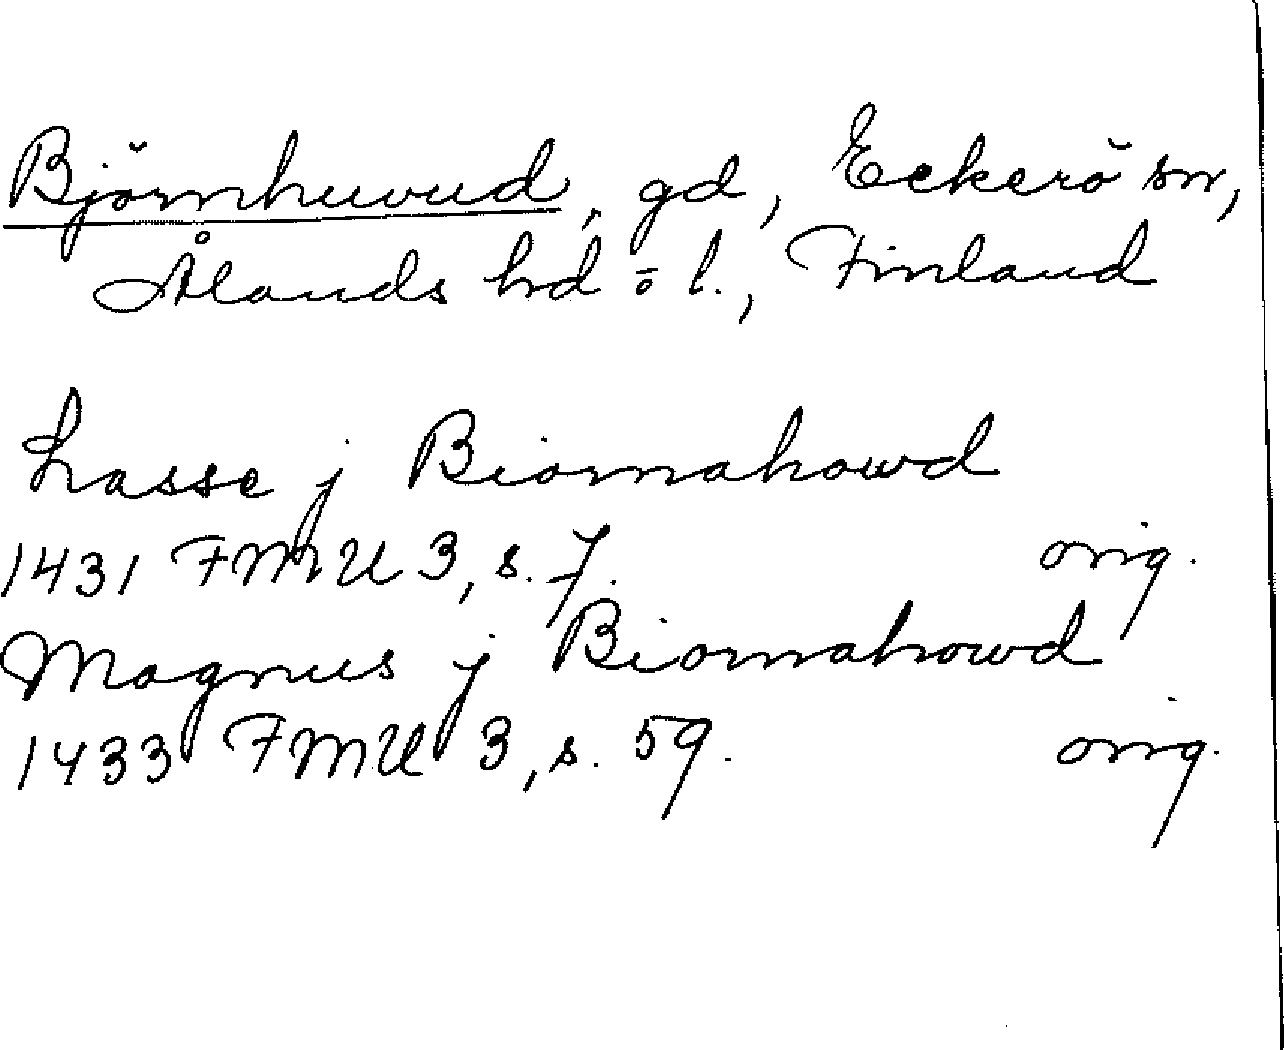 Björnhuvud, gd, Eckerö sn,
Ålands hd o l., Finland
Lasse j Biornahowd
1431 FMU 3, s. 7. orig.
Magnus j Biornahowd
1433 FMU 3, s. 59. orig.